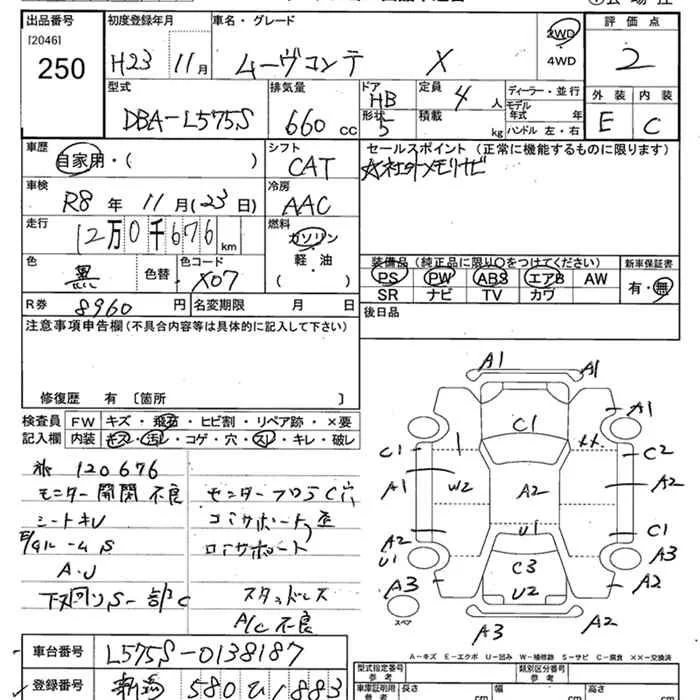 出品番号 初度登録年月 車名・グレード 評価点
[2046]
250 H23 11月 ムーヴコンテ X 2WD 4WD 2
型式 排気量 ドア 定員 ディーラー・並行 外装 内装
DBA-L575S 660cc HB 形状 5 4人 積載 kg モデル年式 年 ハンドル 左・右 E C
車歴 シフト セールスポイント(正常に機能するものに限ります)
自家用・( ) CAT ☆社外メモリナビ
車検 冷房
R8年11月(23日) AAC
走行 燃料
12万0千676km ガソリン
軽・油
( )
装備品(純正品に限り○をつけてください) 新車保証書
PS PW ABS エアB AW 有・無
SR ナビ TV カワ
色 色替 色コード
黒 X07
R券 8960円 名変期限 月 日 後日品
注意事項申告欄(不具合内容等は具体的に記入して下さい)
修復歴 有〔箇所
検査員 FW キズ・飛石・ヒビ割・リペア跡・×要
記入欄 内装 キズ・汚レ・コゲ・穴・スレ・キレ・破レ
120676
モニター開閉不良
シートキレ
A.U
下廻りS-部C
モニターフロラC穴
コアサポート歪
ロアサポート
スタッドレス
A/C不良
A1 A1
A1
C1
C1 ×× C2
A1 W2 A2 A2
A2 U1 C1
U1 C3 A3
A3 U2 A2
スペア
A3 A2
A-キズ E-エクボ U-凹み W-補修跡 S-サビ C-腐食 ××-交換済
車台番号 L575S-0138187
登録番号 新潟 580 ひ 1883
型式指定番号 参考 類別区分番号 参考
車庫証明用 参考 長さ cm 幅 cm 高さ cm